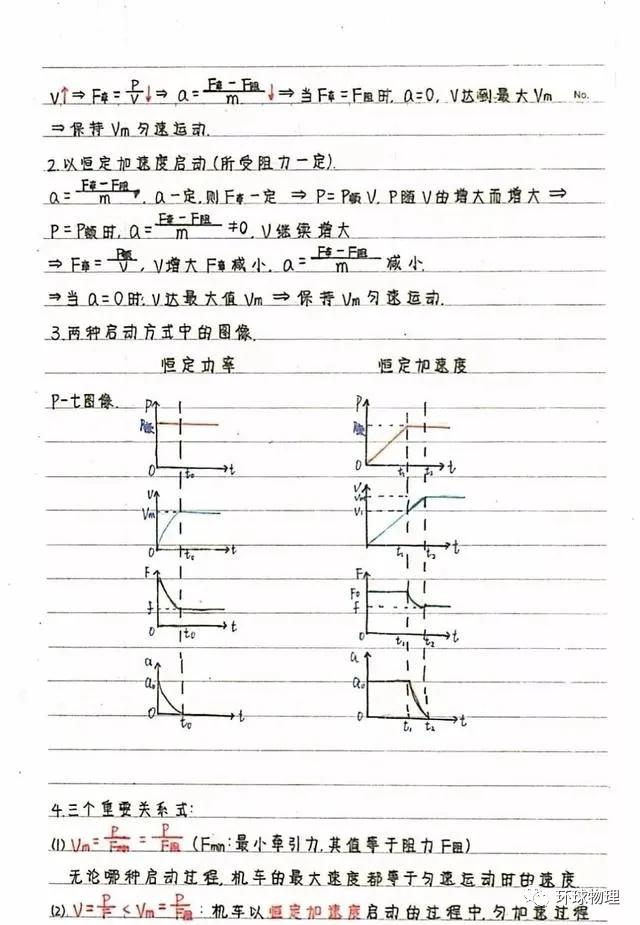 V↑⇒F牵=P/V↓⇒a=(F牵-F阻)/m↓⇒当F牵=F阻时,a=0,V达到最大Vm No.
⇒保持Vm匀速运动.
2.以恒定加速度启动(所受阻力一定).
a=(F牵-F阻)/m,a一定,则F牵一定⇒P=P额V,P随V的增大而增大⇒
P=P额时,a=(F牵-F阻)/m≠0,V继续增大
⇒F牵=P额/V,V增大F牵减小,a=(F牵-F阻)/m减小.
⇒当a=0时,V达最大值Vm⇒保持Vm匀速运动.
3.两种启动方式中的图像.
恒定功率 恒定加速度
P-t图像.
P P额 0 t0 t
P P额 0 t1 t2 t
V Vm 0 t0 t
V Vm V1 0 t1 t2 t
F f 0 t0 t
F F0 f 0 t1 t2 t
a a0 0 t0 t
a a0 0 t1 t2 t
4.三个重要关系式:
(1)Vm=P/Fmin=P/F阻(Fmin:最小牵引力,其值等于阻力F阻)
无论哪种启动过程,机车的最大速度都等于匀速运动时的速度
(2).V=P/F<Vm=P/F阻:机车以恒定加速度启动的过程中,匀加速过程
环球物理